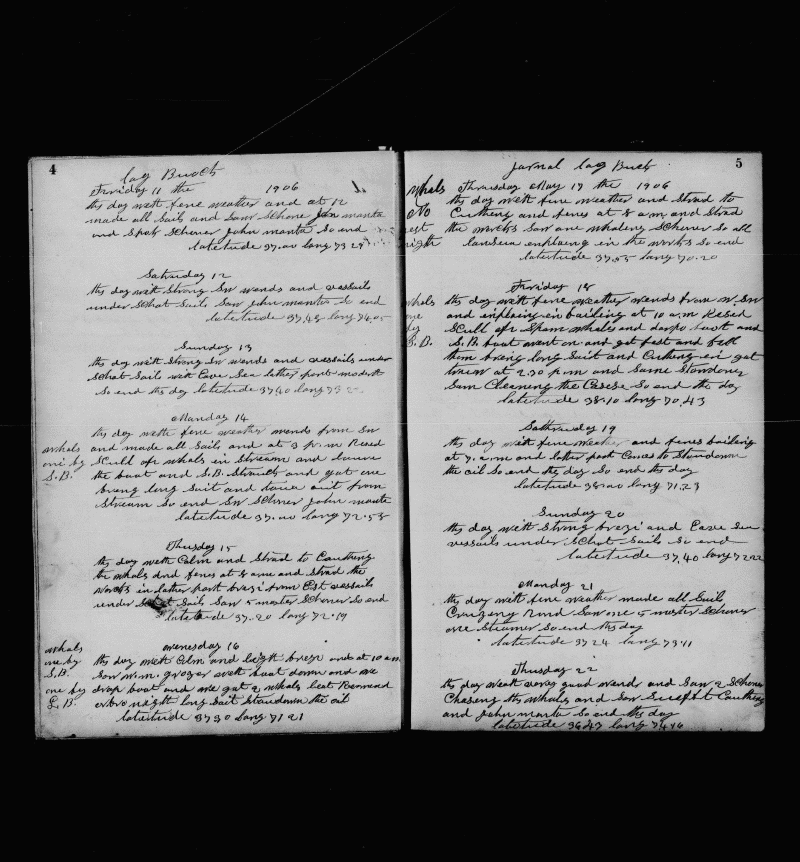 4
log Buoch
Friday 11 the 1906
this day with fine weather and at 12
made all Sails and Saw Schoner John manta
and Spok Schoner John manta So end
latetude 37.00 long 73 27
Saturday 12
this day with Strong Sw wends and vessails
under Schot Sails Saw John manta So end
latetude 37,48 long 74,05
Sunday 13
this day with Strong Sw wends and vessails under
Schot Sail with Cave Sea latter part moderth
So end this day latetude 37,40 long 73
Manday 14
this day with fine weather wends from Sw
whals and made all Sails and at 3 p.m Resed
one by Scull ofe whals in Stream and
S.B. the boat and S.B. Struck and gat one
breng long Suit and out from
Stream So end Saw Schoner John manta
latetude 37.00 long 72.58
Thusday 15
this day with Calm and Strad to Cautheng
the whals and fenes at 8 ame and Strad the
Works in latter part brezi from Est vessails
under Sails Saw 5 master Schoner So end
latetude 37.20 long 72.19
whals wenesday 16
one by this day with Calm and light brezi and at 10 am
S.B. Saw w.m. grozer with boat down and we
one by drop boat and we gat 2 whals
L.B. night long Sait Standown the oil
latetude 37 30 long 71 21
5
jarnal log Buch
whals Thursday May 17 the 1906
No this day with fine weather and Strad to
est Cutheng and fenes at 8 a.m and Strad
the works Saw one whaleng Schoner So all
in the works So end
latetude 37,55 long 70.20
Friday 18
whals this day with fine weather wends from w. Sw
one and in baileng at 10 a.m Resed
by Scull ofe Spam whals and boat and
S.B. S.B. boat went on and gat fast and
them breng long Suit and Cutheng en gat
at 2.30 p.m and Same Standown
Sam Cleaneng the So end the day
latetude 38.10 long 70.43
Satthurday 19
this day with fine weather and fenes baileng
at 7. a.m and latter part to Standown
the oil So end this day So end this day
latetude 38.00 long 71.23
Sunday 20
this day with Strong brezi and Cave Sea
vessails under Schot Sails So end
latetude 37,40 long 72,22
Manday 21
this day with fine weather made all Sail
Saw one 5 master Schoner
one Steamer So end this day
latetude 37 24 long 73 11
Thusday 22
this day with good wends and Saw 2 Schoner
Chaseng the whals and Saw
and John manta So end this day
latetude 36 47 long 74 16